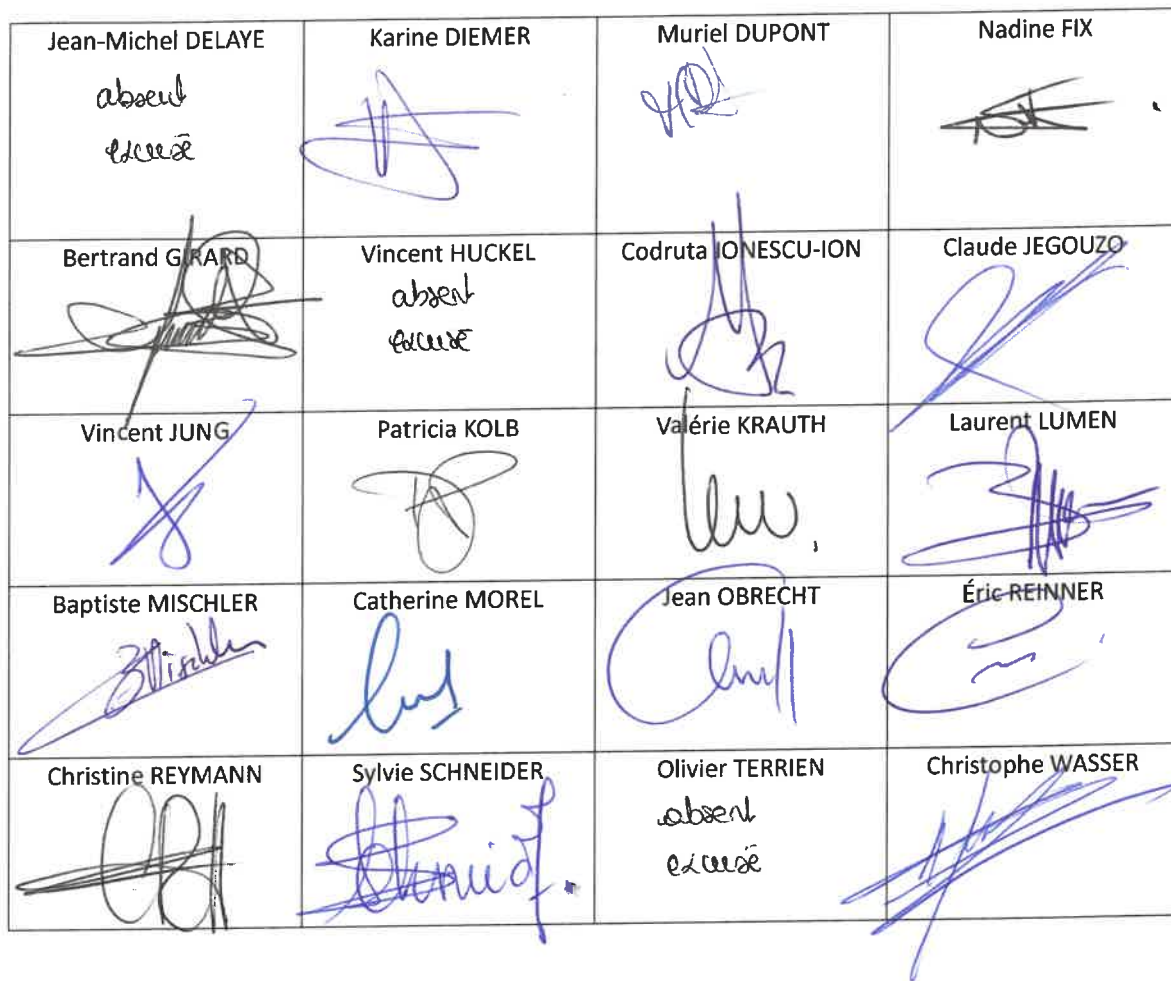 Jean-Michel DELAYE
absent
excusé
Karine DIEMER
Muriel DUPONT
Nadine FIX
Bertrand GIRARD
Vincent HUCKEL
absent
excusé
Codruta IONESCU-ION
Claude JEGOUZO
Vincent JUNG
Patricia KOLB
Valérie KRAUTH
Laurent LUMEN
Baptiste MISCHLER
BMischler
Catherine MOREL
Jean OBRECHT
Éric REINNER
Christine REYMANN
Sylvie SCHNEIDER
Olivier TERRIEN
absent
excusé
Christophe WASSER